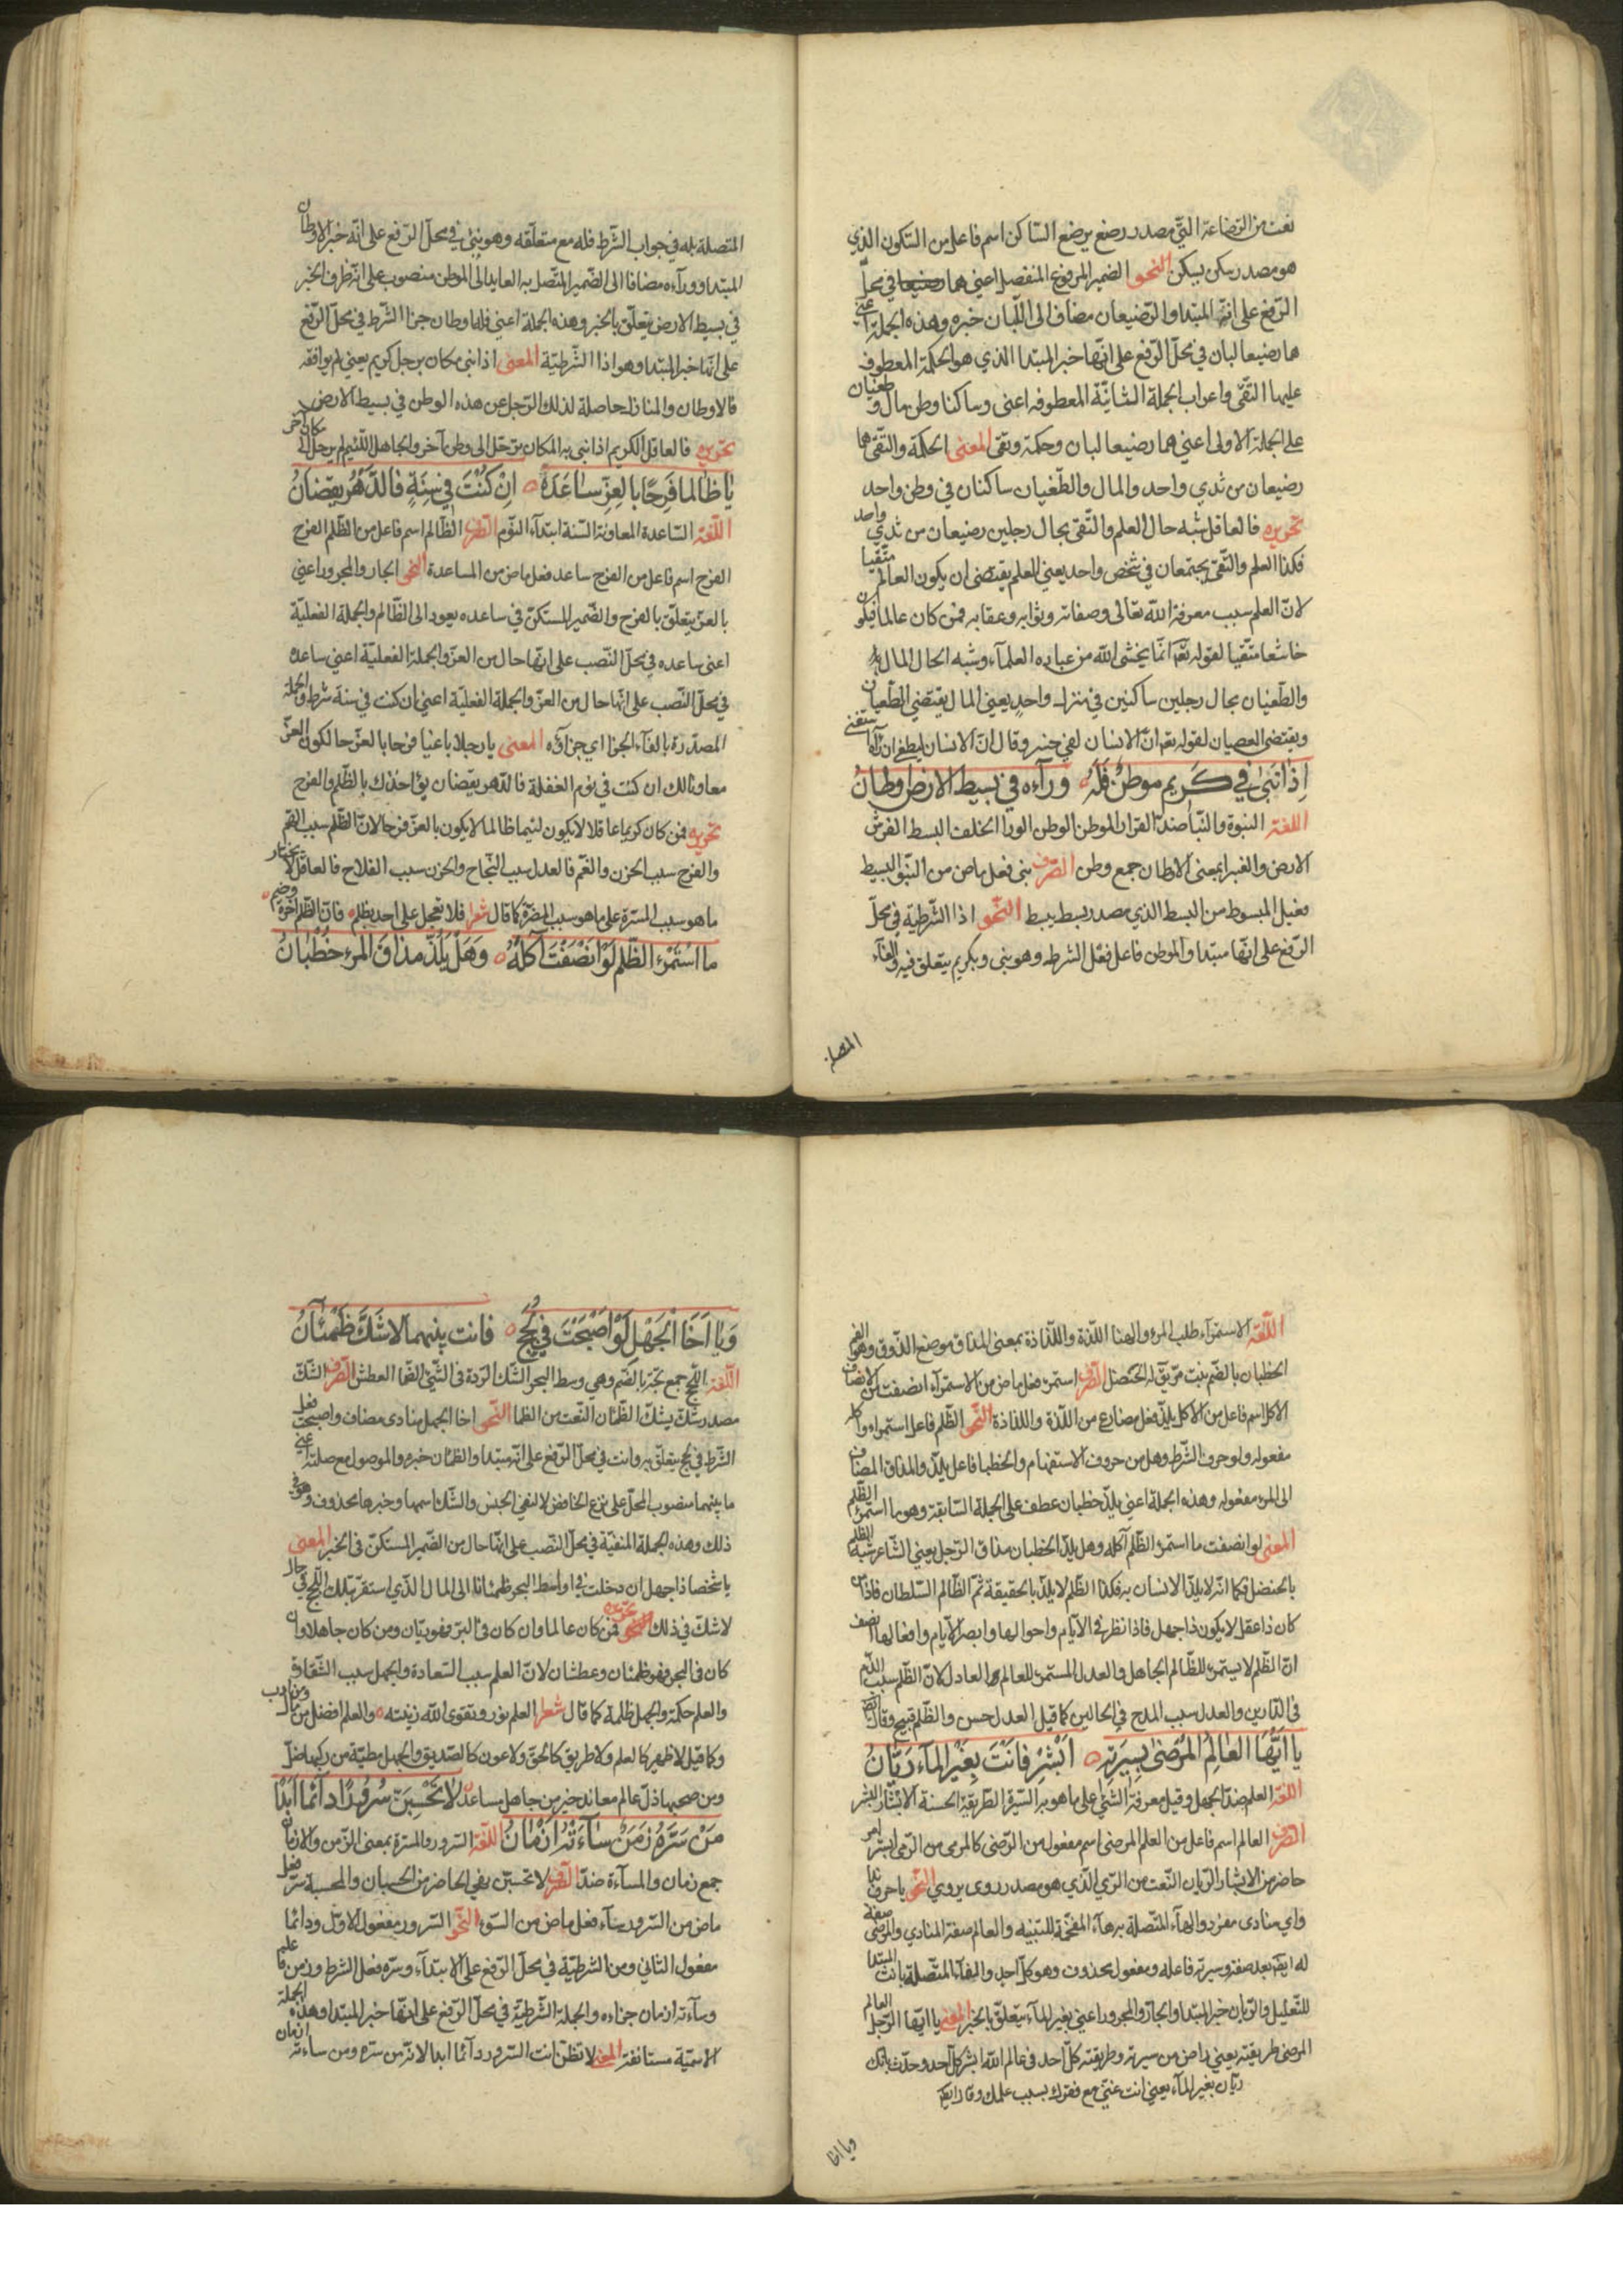 نعت من الرضاعة التي مصدر رضع يرضع الساكن اسم فاعل من السكون الذي
هو مصدر سكن يسكن النحو الضمير المرفوع المنفصل اعني هما في محلّ
الرّفع على انه المبتدا والرّضيعان مضاف الى اللّبان خبره وهذه الجملة اعني
هما رضيعا لبان في محلّ الرّفع على انّها خبر المبتدا الذي هو الحكمة المعطوف
عليها التّقى واعراب الجملة الثانيّة المعطوفه اعنى وساكنا وطن مال وطغيان
على الجملة الاولى اعني هما رضيعا لبان وحكمة وتقى المعنى الحكمة والتّقى هما
رضيعان من ثدي واحد والمال والطّغيان ساكنان في وطن واحد
تحويره فالعاقل شبه حال العلم والتّقى بحال رجلين رضيعان من ثدي واحد
فكذا العلم والتّقى يجتمعان في شخص واحد يعني العلم يقتضى ان يكون العالم متّقيا
لانّ العلم سبب معرفة الله تعالى وصفاته وثوابه وعقابه فمن كان عالما فيكون
خاشعا متّقيا لقوله تعم انّما يخشى الله من عباده العلمآء وشبه الحال المال
والطّغيان بحال رجلين ساكنين في منزل واحد يعني المال يقتضي الطّغيان
ويقتضى العصيان لقوله تعم انّ الانسان لفي خسر وقال انّ الانسان ليطغى ان رآه استغنى
اِذا نَبىٰ في كَريم موطنٌ فَلَهُ ورآءه في بسيط الارض اوطانُ
اللغة النبوة والنّبا ضدّ القرار الموطن الوطن الورا الخلف البسط الفرش
الارض والغبرا بمعنى الاوطان جمع وطن الصّرف نبى فعل ماض من النّبو البسيط
فعيل المبسوط من البسط الذي مصدر بسط يبسط النّحو اذا الشّرطية في محلّ
الرّفع على انّها مبتدا والموطن فاعل فعل الشرط وهو نبى وبكريم يتعلق فيه والفآء
المتصلة
المتصلة بله في جواب الشّرط فله مع متعلّقه وهو بنى في محلّ الرّفع على انّه خبر الاوطان
المبتدا وورآءه مضافا الى الضّمير المتّصل به العايد الى الموطن منصوب على انّه ظرف الخبر
في بسيط الارض يتعلّق بالخبر وهذه الجملة اعني فله اوطان جزا الشّرط في محلّ الرّفع
على انّها خبر المبتدا وهو اذا الشّرطيّة المعنى اذا نبى مكان برجل كريم يعني لم يوافقه
فالاوطان والمنازل حاصلة لذلك الرّجل عن هذه الوطن في بسيط الارض
تحويره فالعاقل الكريم اذا نبى به المكان يرتحل الى وطن آخر والجاهل اللّئيم لم يرحل الى مكان آخر
يا ظالما فَرِحًا بالعِزِّ ساعَدَهُ اِنْ كُنْتَ في سِنَةٍ فالدَّهْرُ يقضانُ
اللّغة السّاعدة المعاونة السّنة ابتدآء النّوم الصّرف الظّالم اسم فاعل من الظّلم الفرح
الفرح اسم فاعل من الفرح ساعد فعل ماض من المساعدة النّحو الجار والمجرور اعني
بالعزّ يتعلّق بالفرح والضّمير المستكنّ في ساعده يعود الى الظّالم والجملة الفعليّة
اعنى ساعده في محلّ النّصب على انّها حال من العزّ والجملة الفعليّة اعني ساعده
في محلّ النّصب على انّها حال من العزّ والجملة الفعليّة اعني ان كنت في سنة شرط والجملة
المصدّرة بالفآء الجزا اي جزآؤه المعنى يا رجلا باغيا فرحا بالعزّ حالكون العزّ
معاونا لك ان كنت في نوم الغفلة فالدّهر يقضان يؤاخذك بالظّلم والفرح
تحويره فمن كان كريما عاقلا لا يكون لئيما ظالما لا يكون بالعزّ فرحا لانّ الظّلم سبب الغم
والفرح سبب الحزن والغمّ فالعدل سبب النّجاح والحزن سبب الفلاح فالعاقل لا يختار
ما هو سبب المسرّة على ما هو سبب المضرّة كما قال شعر فلا تعجل على احد بظلم فانّ الظّلم آخره وخيم
ما استَمْرَء الظّلم لَوْ انْصَفْتَ آكلُهُ وَهَلْ يَلُذّ مذاقَ المرء خُطْبانُ
اللّغة الاستمرآء طلب المرؤ والهنا اللّذة واللّذاذة بمعنى المذاق موضع الذّوق وهو الفم
الخطبان بالضّم نبت مرّ يق له الحنضل الصّرف استمرء فعل ماض من الاستمرآء انصفت من الانصاف
الآكل اسم فاعل من الاكل يلذّ فعل مضارع من اللّذة واللذاذة النّحو الظّلم فاعل استمراء وآكله
مفعوله ولو حرف الشّرط وهل من حروف الاستفهام والخطبا فاعل يلذّ والمذاق المضاف
الى المرء مفعوله وهذه الجملة اعني يلذّ خطبان عطف على الجملة السّابقة وهو ما استمرء الظّلم
المعنى لو انصفت ما استمرء الظّلم آكله وهل يلذّ الخطبان مذاق الرّجل يعني الشّاعر شبّه الظّلم
بالحنضل فكما انّه لا يلذّ الانسان به فكذا الظّلم لا يلذّ بالحقيقة ثمّ الظّالم السّلطان فاذا
كان ذا عقل لا يكون ذا جهل فاذا نظر في الآيّام واحوالها وابصر الايام وافعالها انصف
انّ الظّلم لا يستمرء للظّالم الجاهل والعدل المستمرء للعالم العادل لانّ الظّلم سبب الذّم
فى الدّارين والعدل سبب المدح في الحالين كما قيل العدل حسن والظّلم قبيح وقال ايضا
يا اَيُّهَا العالِمُ المَرْضىٰ بِسِيرَتِهِ اَبْشِرْ فانْتَ بِغَيْرِ المآءِ رَيّانُ
اللّغة العلم ضدّ الجهل وقيل معرفة الشّئ على ما هو به السّيرة الطّريقة الحسنة الابشار البشر
الصّرف العالم اسم فاعل من العلم المرضى اسم مفعول من الرّضى كالمرمى من الرّمى ابشر امر
حاضر من الابشار الرّيان النّعت من الرّي الّذي هو مصدر روى يروي النّحو يا حرف ندا
واي منادى مفرد والهآء المتّصلة به هآء المقحمة للتّنبيه والعالم صفة المنادي والمرضى صفة
له ايضا بعد صفة وسيرته فاعله ومفعوله محذوف وهو كلّ احد والفآء المتّصلة بانت المبتدا
للتّعليل والرّيان خبر المبتدا والجارّ والمجرور اعني بغير المآء يتعلّق بالخبر المعنى يا ايّها الرّجل العالم
المرضى طريقته يعني راض من سيرته وطريقته كلّ احد فى عالم الله ابشر كلّ احد وحدّث بانّك
ريّان بغير المآء يعني انت غنيّ مع فقرك بسبب علمك وقال ايضا
ويا اخا
وَيا اَخَا الْجَهْل لَوْ اصْبَحْتَ في لُجَجٍ فانت بينهما لاشَكَّ ظَمْئانُ
اللّغة اللّجج جمع لجّة بالضّم وهي وسط البحر الشّك الرّدة فى الشّئ الظّما العطش الصّرف الشّك
مصدر شكّ يشكّ الظّمئان النّعت من الظما النّحو اخا الجهل منادى مضاف واصبحت فعل
الشّرط في لجج يتعلّق به وانت في محلّ الرّفع على انّه مبتدا والظمئان خبره والموصول مع صلته اعني
ما بينهما منصوب المحلّ على نزع الخافض لا لنفي الجنس والشّك اسمها وخبرها محذوف وهو في
ذلك وهذه الجملة المنفيّة في محلّ النّصب على انّها حال من الضّمير المستكنّ فى الخبر المعنى
يا شخصا ذا جهل ان دخلت في اواسط البحر ظمئانا الى المال الّذي استقرّ بتلك اللّجج في حال
لا شكّ في ذلك تحويره فمن كان عالما وان كان فى البرّ فهو ريّان ومن كان جاهلا وان
كان فى البحر فهو ظمئان وعطشان لانّ العلم سبب السّعادة والجهل سبب الشّقاوة
والعلم حكمة والجهل ظلمة كما قال شعر العلم نور وتقوى الله زينته والعلم افضل من مال ومن ادب
وكما قيل لا ظهير كالعلم ولا طريق كالحقّ ولا عون كالصّديق والجهل مطيّة من ركبها ضلّ
ومن صحبها ذلّ عالم معاند خير من جاهل مساعد لا تَحْسَبَنَّ سُرُورًا دآئما اَبَدًا
مَنْ سَرَّهُ زَمَنٌ سآءَتْهُ اَزْمانُ اللّغة السّرور والمسرّة بمعنى الزّمن والازمان
جمع زمان والمسآءة ضدّ الصّرف لا تحسبنّ نهي الحاضر من الحسبان والمحسبة سرّ فعل
ماض من السّرور سآء فعل ماض من السّوء النّحو السّرور مفعول الاوّل ودائما
مفعول الثاني ومن الشرطيّة في محلّ الرّفع على الابتدآء وسرّه فعل الشرط وزمن فاعله
وسآءته ازمان جزاءه والجملة الشّرطيّة في محلّ الرّفع على انّها خبر المبتدا وهذه الجملة
الاسميّة مستانفة المعنى لا تظنّ انت السّرور دآئما ابدا لانّه من سرّه زمن ساءته ازمان